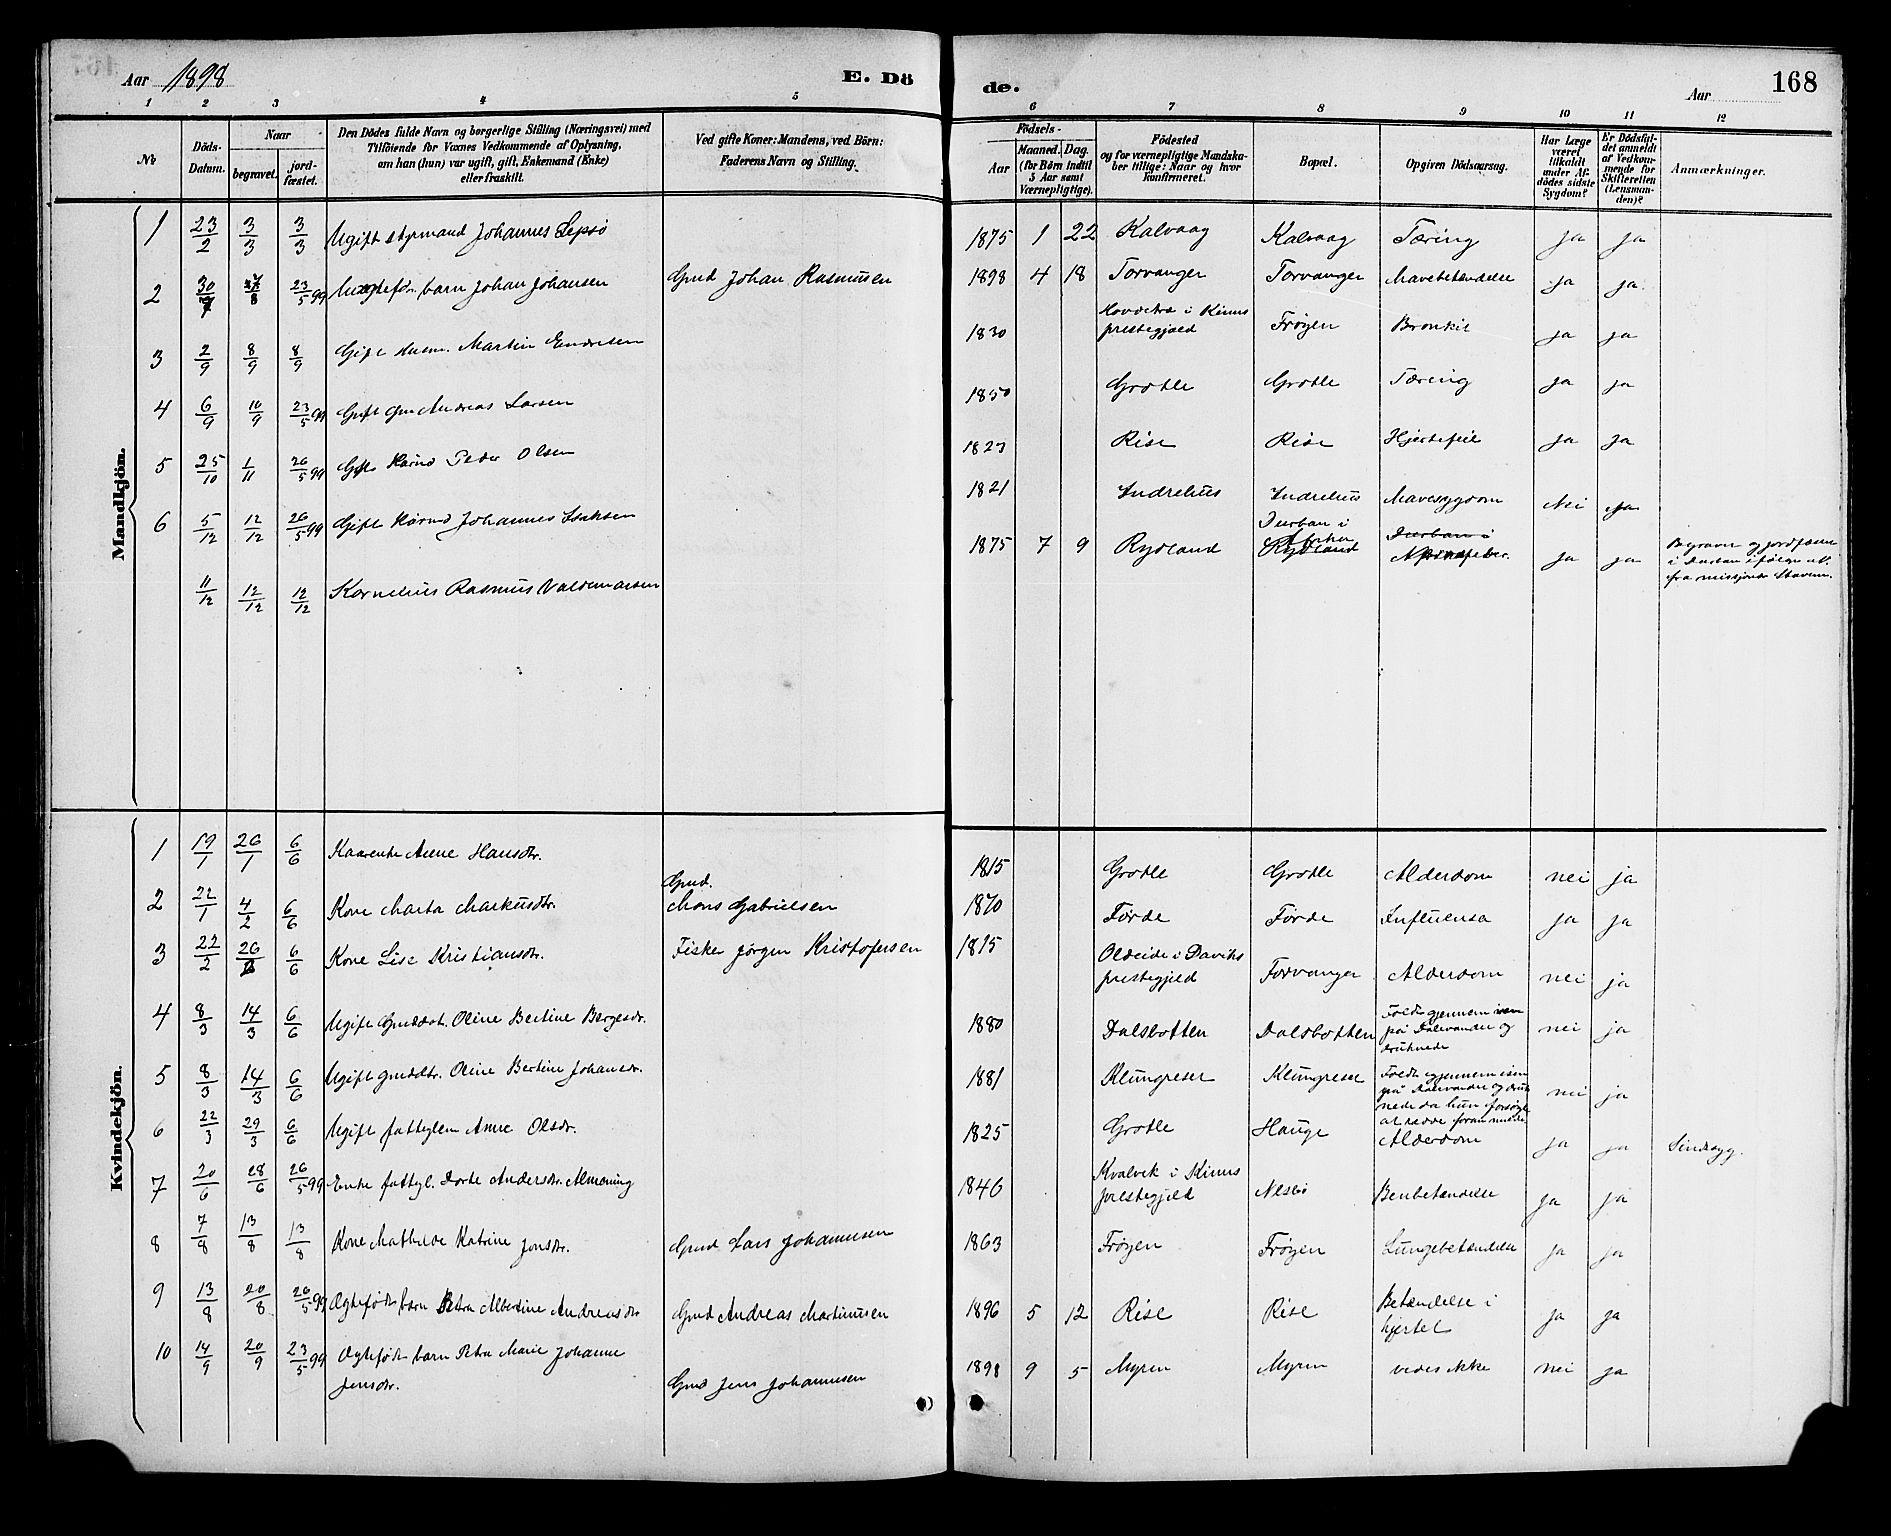 Aar 1898
E. Dö
de.
Aar
168
1 2 3 4 5 6 7 8 9 10 11 12
No
Döds-
Datum.
Naar
begravet.
jord-
fæstet.
Den Dödes fulde Navn og borgerlige Stilling (Næringsvei) med
Tilföiende for Voxnes Vedkommende af Oplysning,
om han (hun) var ugift, gift, Enkemand (Enke)
eller fraskilt.
Ved gifte Koner: Mandens, ved Börn:
Faderens Navn og Stilling.
Födsels-
Aar
Maaned. Dag.
(for Börn indtil
5 Aar samt
Værnepligtige).
Födested
og for værnepligtige Mandska-
ber tillige: Naar og hvor
konfirmeret.
Bopæl.
Opgiven Dödsaarsag.
Har Læge
været
tilkaldt
under Af-
dödes sidste
Sygdom?
Er Dödsfal-
det anmeldt
af Vedkom-
mende for
Skifteretten
(Lensman-
den)?
Anmærkninger.
Mandkjön.
1 23/2 3/3 3/3 Ugift styrmand Johannes Lepsö 1875 1 22 Kalvaag Kalvaag Tæring ja ja
2 30/7 23/5 99 barn Johan Johansen Gmd Johan Rasmusen 1898 4 18 Torvanger Torvanger Mavebetændelse ja ja
3 2/9 8/9 8/9 Gift Husm. Martin Endresen 1830 i Kinns
prestegjæld Frøyen Bronkit ja ja
4 6/9 10/9 23/5 99 Gift Gm Andreas Larsen 1850 Grotle Grotle Tæring ja ja
5 25/10 1/11 26/5 99 Gift Kaarmd Peder Olsen 1823 Rise Rise Hjertefeil ja ja
6 5/12 12/12 26/5 99 Gift Kårmd Johannes Isaksen 1821 Indrehus Indrehus Mavesygdom Nei ja
11/12 12/12 12/12 Kornelius Rasmus Valdemarsen 1875 7 9 Rydland Durban i
Rydland Durban i
ja ja
i Durban ifølge
fra
Kvindekjön.
1 19/1 26/1 6/6 Kaarenke Anne Hansdtr. 1815 Grotle Grotle Alderdom nei ja
2 22/1 4/2 6/6 Kone Marta Markusdtr. Gmd.
Mons Gabrielsen 1870 Førde Førde Influensa ja ja
3 22/2 26/2 6/6 Kone Lise Kristiansdtr. Fisker Jørgen Kristofersen 1815 Oldeide i Daviks
prestegjeld Torvanger Alderdom nei ja
4 8/3 14/3 6/6 Ugift Gmddat. Oline Bertine Børgesdr. 1880 Dalsbotten Dalsbotten Faldt gjennem isen
på Dalevandet og
druknede nei ja
5 8/3 14/3 6/6 Ugift gmddtr. Oline Bertine Johansdr. 1881 Klungreset Klungreset Faldt gjennem isen
på Dalevandet og druk
nede da hun forsøgte
at redde foranmeldte nei ja
6 22/3 29/3 6/6 Ugift fattiglem Anne Olsdr. 1825 Grotle Hauge Alderdom ja ja Sindssyg.
7 20/6 28/6 26/5 99 Enke fattigl. Dorte Andersdtr. Almening 1846 Kvalvik i Kinns
prestegjeld Nesbø Benbetændelse ja ja
8 7/8 13/8 13/8 Kone Mathilde Katrine Jensdtr. Gmd Lars Johannesen 1863 Frøyen Frøyen Lungebetændelse ja ja
9 13/8 20/8 26/5 99 Egtefødt barn Petra Albertine Andreasdtr Gmd Andreas Martinusen 1896 5 12 Rise Rise Betændelse i
hjertet ja ja
10 14/9 20/9 23/5 99 Egtefødt barn Petra Marie Johanne
Jensdtr. Gmd Jens Johannesen 1898 9 5 Myren Myren vedes ikke nei ja